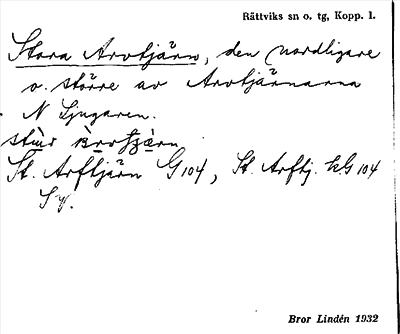 Rättviks sn o. tg, Kopp. l.
Stora Arvtjärn, den nordligare
o. större av Arvtjärnarna
N Ljugaren.
St. Arftjärn G 104, St. Arftj. kG 104
Bror Lindén 1932